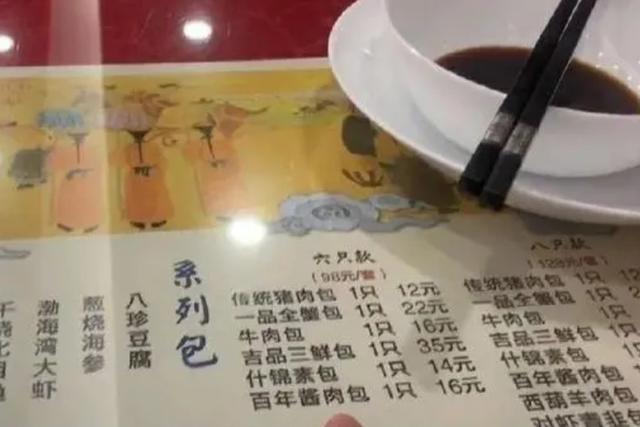 干烧比目鱼
渤海湾大虾
葱烧海参
八珍豆腐
系列包
六只款
(98元/套)
传统猪肉包 1只 12元
一品全蟹包 1只 22元
牛肉包 1只 16元
吉品三鲜包 1只 35元
什锦素包 1只 14元
百年酱肉包 1只 16元
八只款
(128元/套)
传统猪肉包 1只
一品全蟹包 1只
牛肉包 1只
吉品三鲜包
什锦素包
百年酱肉包
西葫羊肉包
对虾青韭包